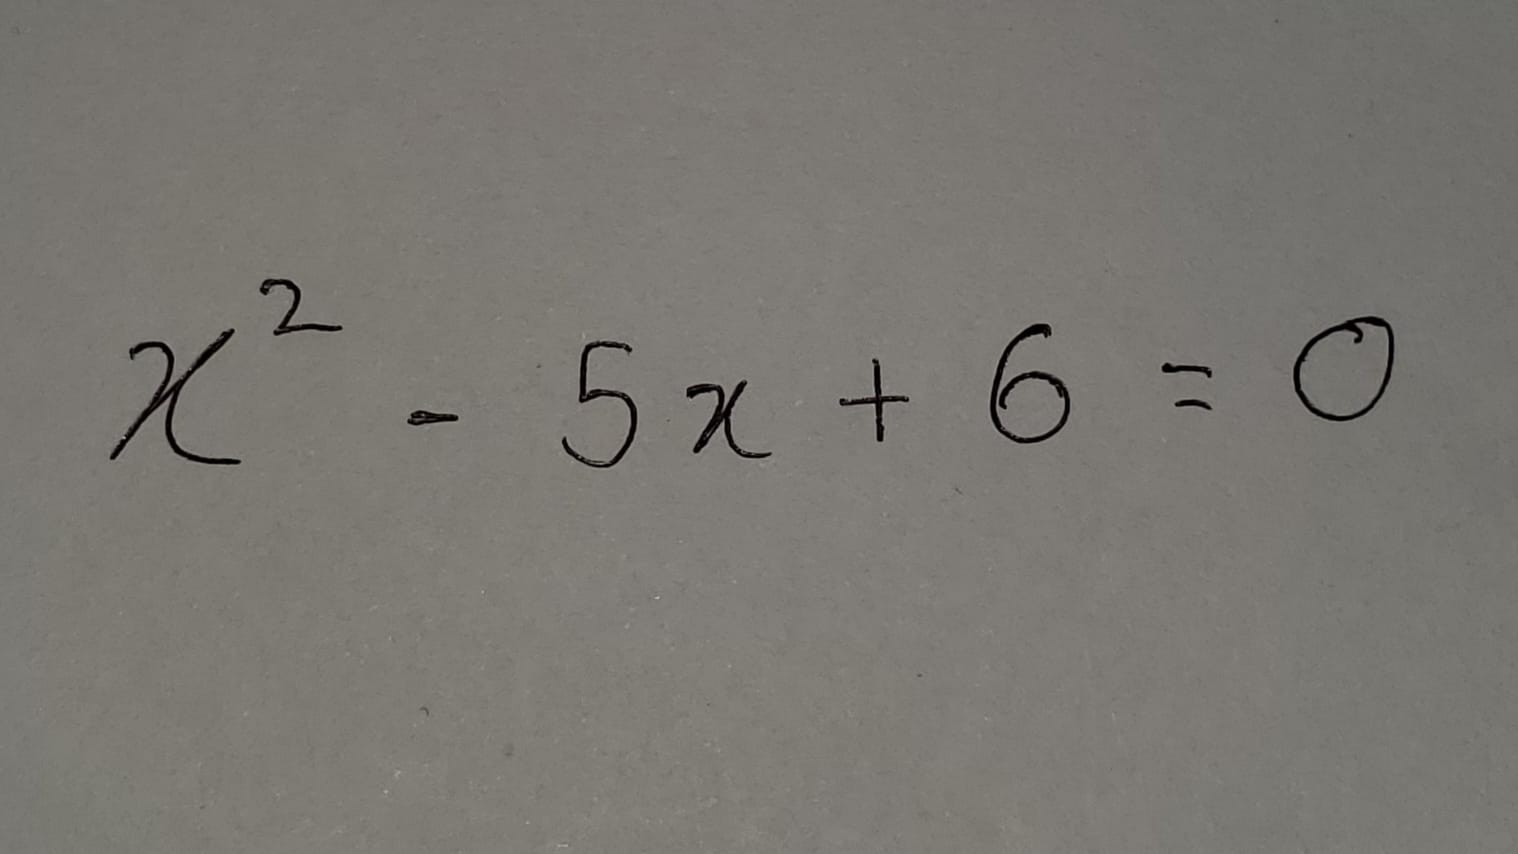 x² - 5x + 6 = 0